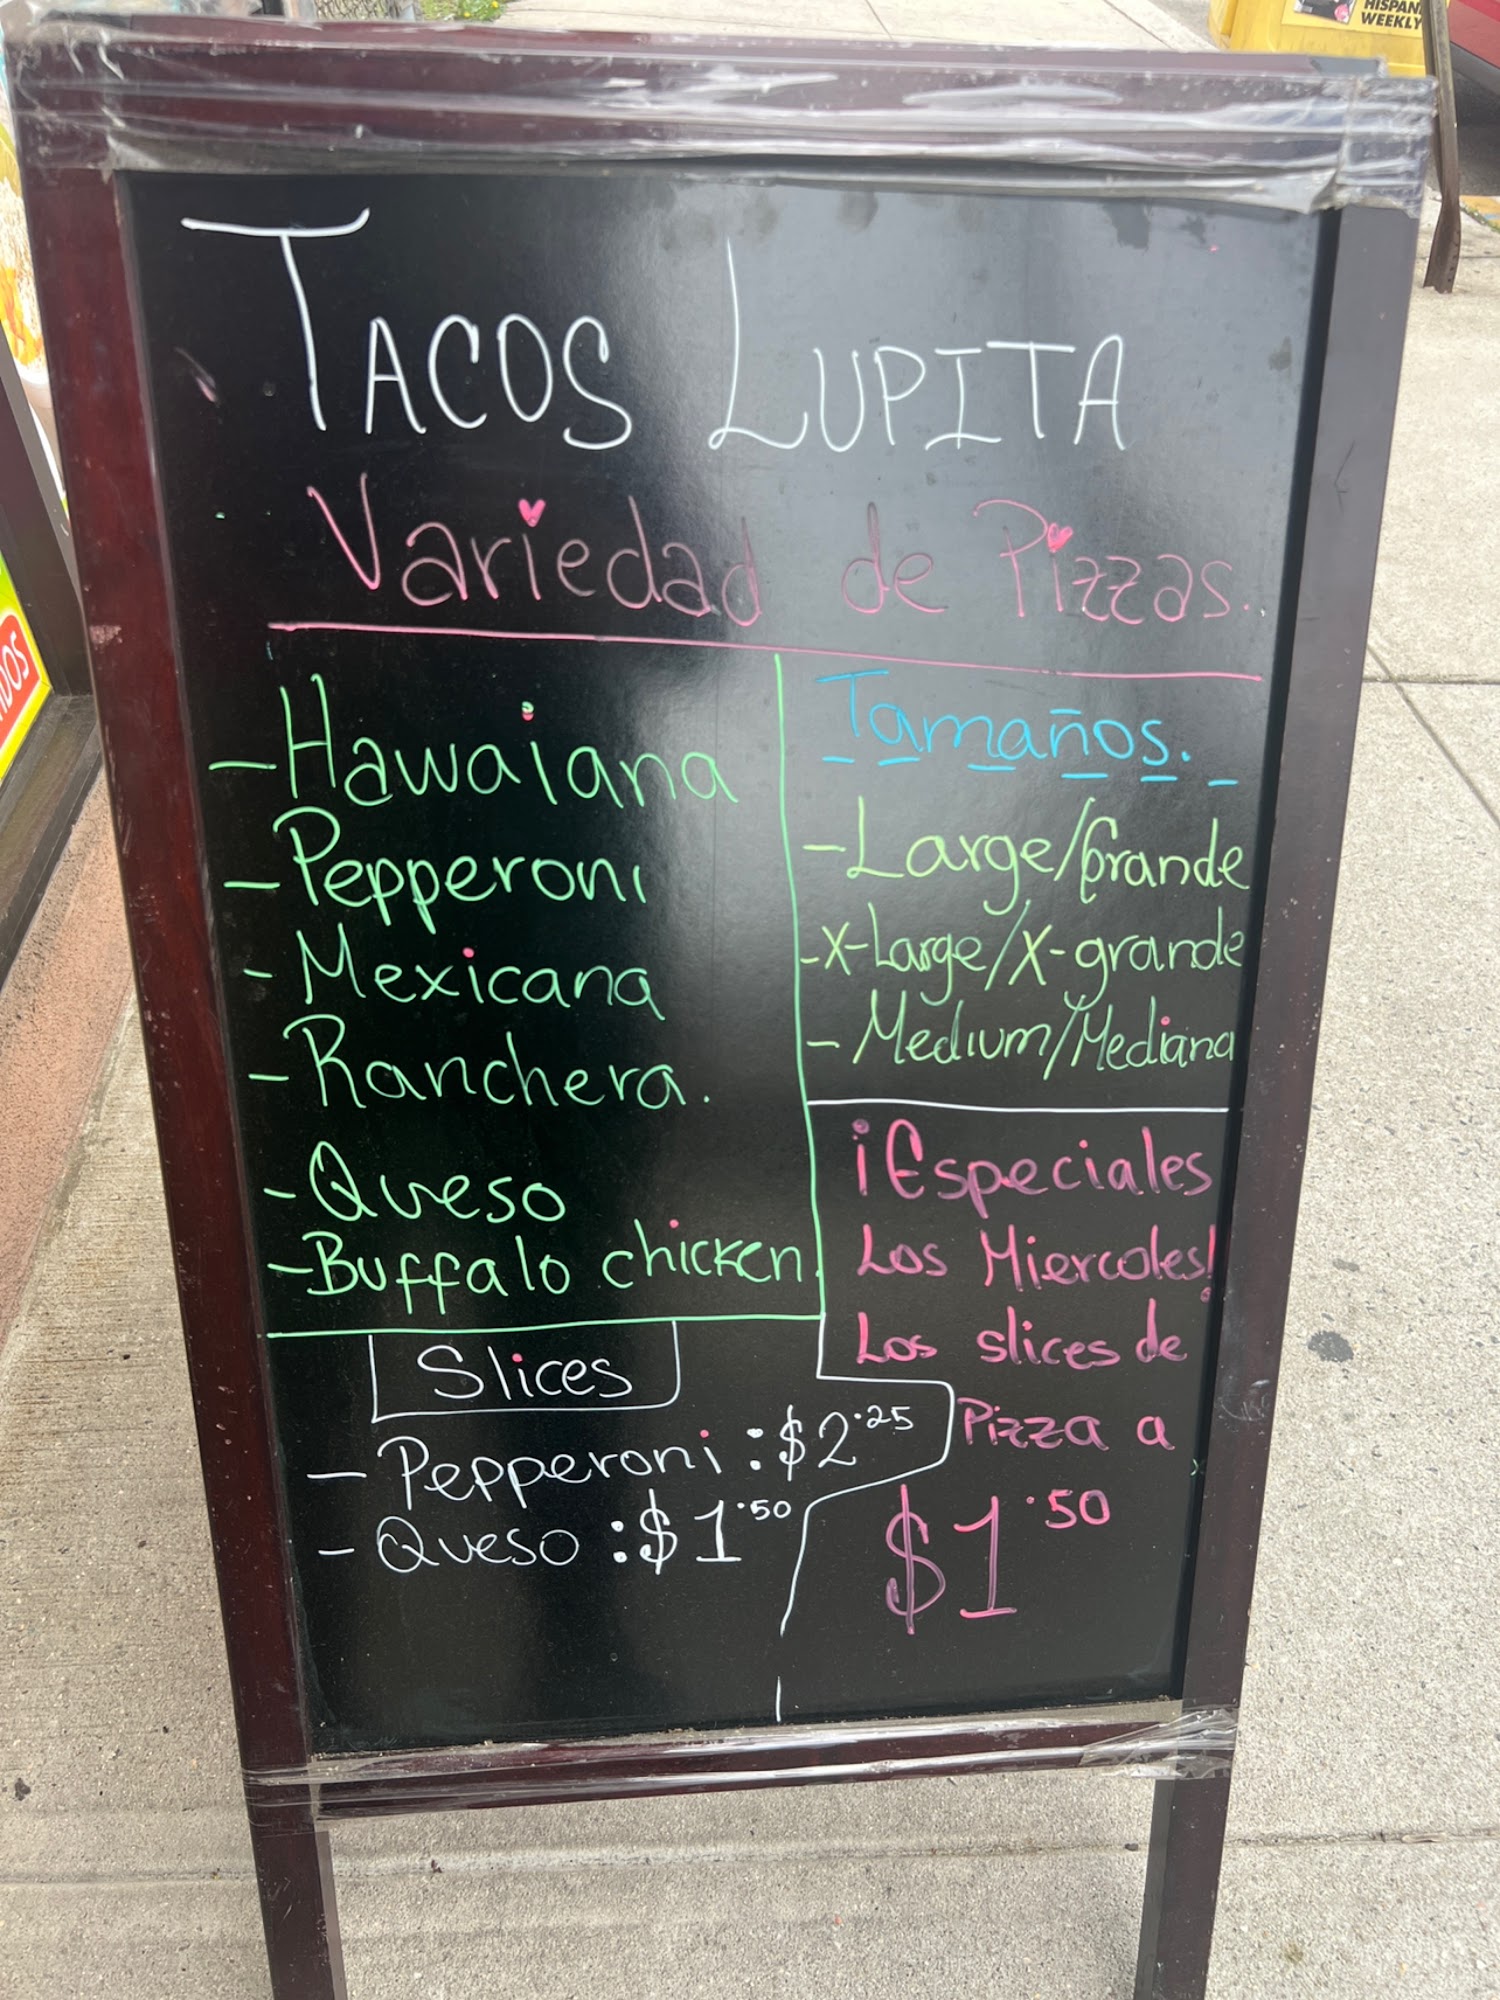 HISPAN
WEEKLY
TACOS LUPITA
Variedad de Pizzas.
- Hawaiana
- Pepperoni
- Mexicana
- Ranchera.
- Queso
- Buffalo chicken.
Tamaños.
- Large/Grande
- X-Large/X-grande
- Medium/Mediana
¡Especiales
Los Miercoles!
Los slices de
Pizza a
$1.50
Slices
- Pepperoni : $2.25
- Queso : $1.50